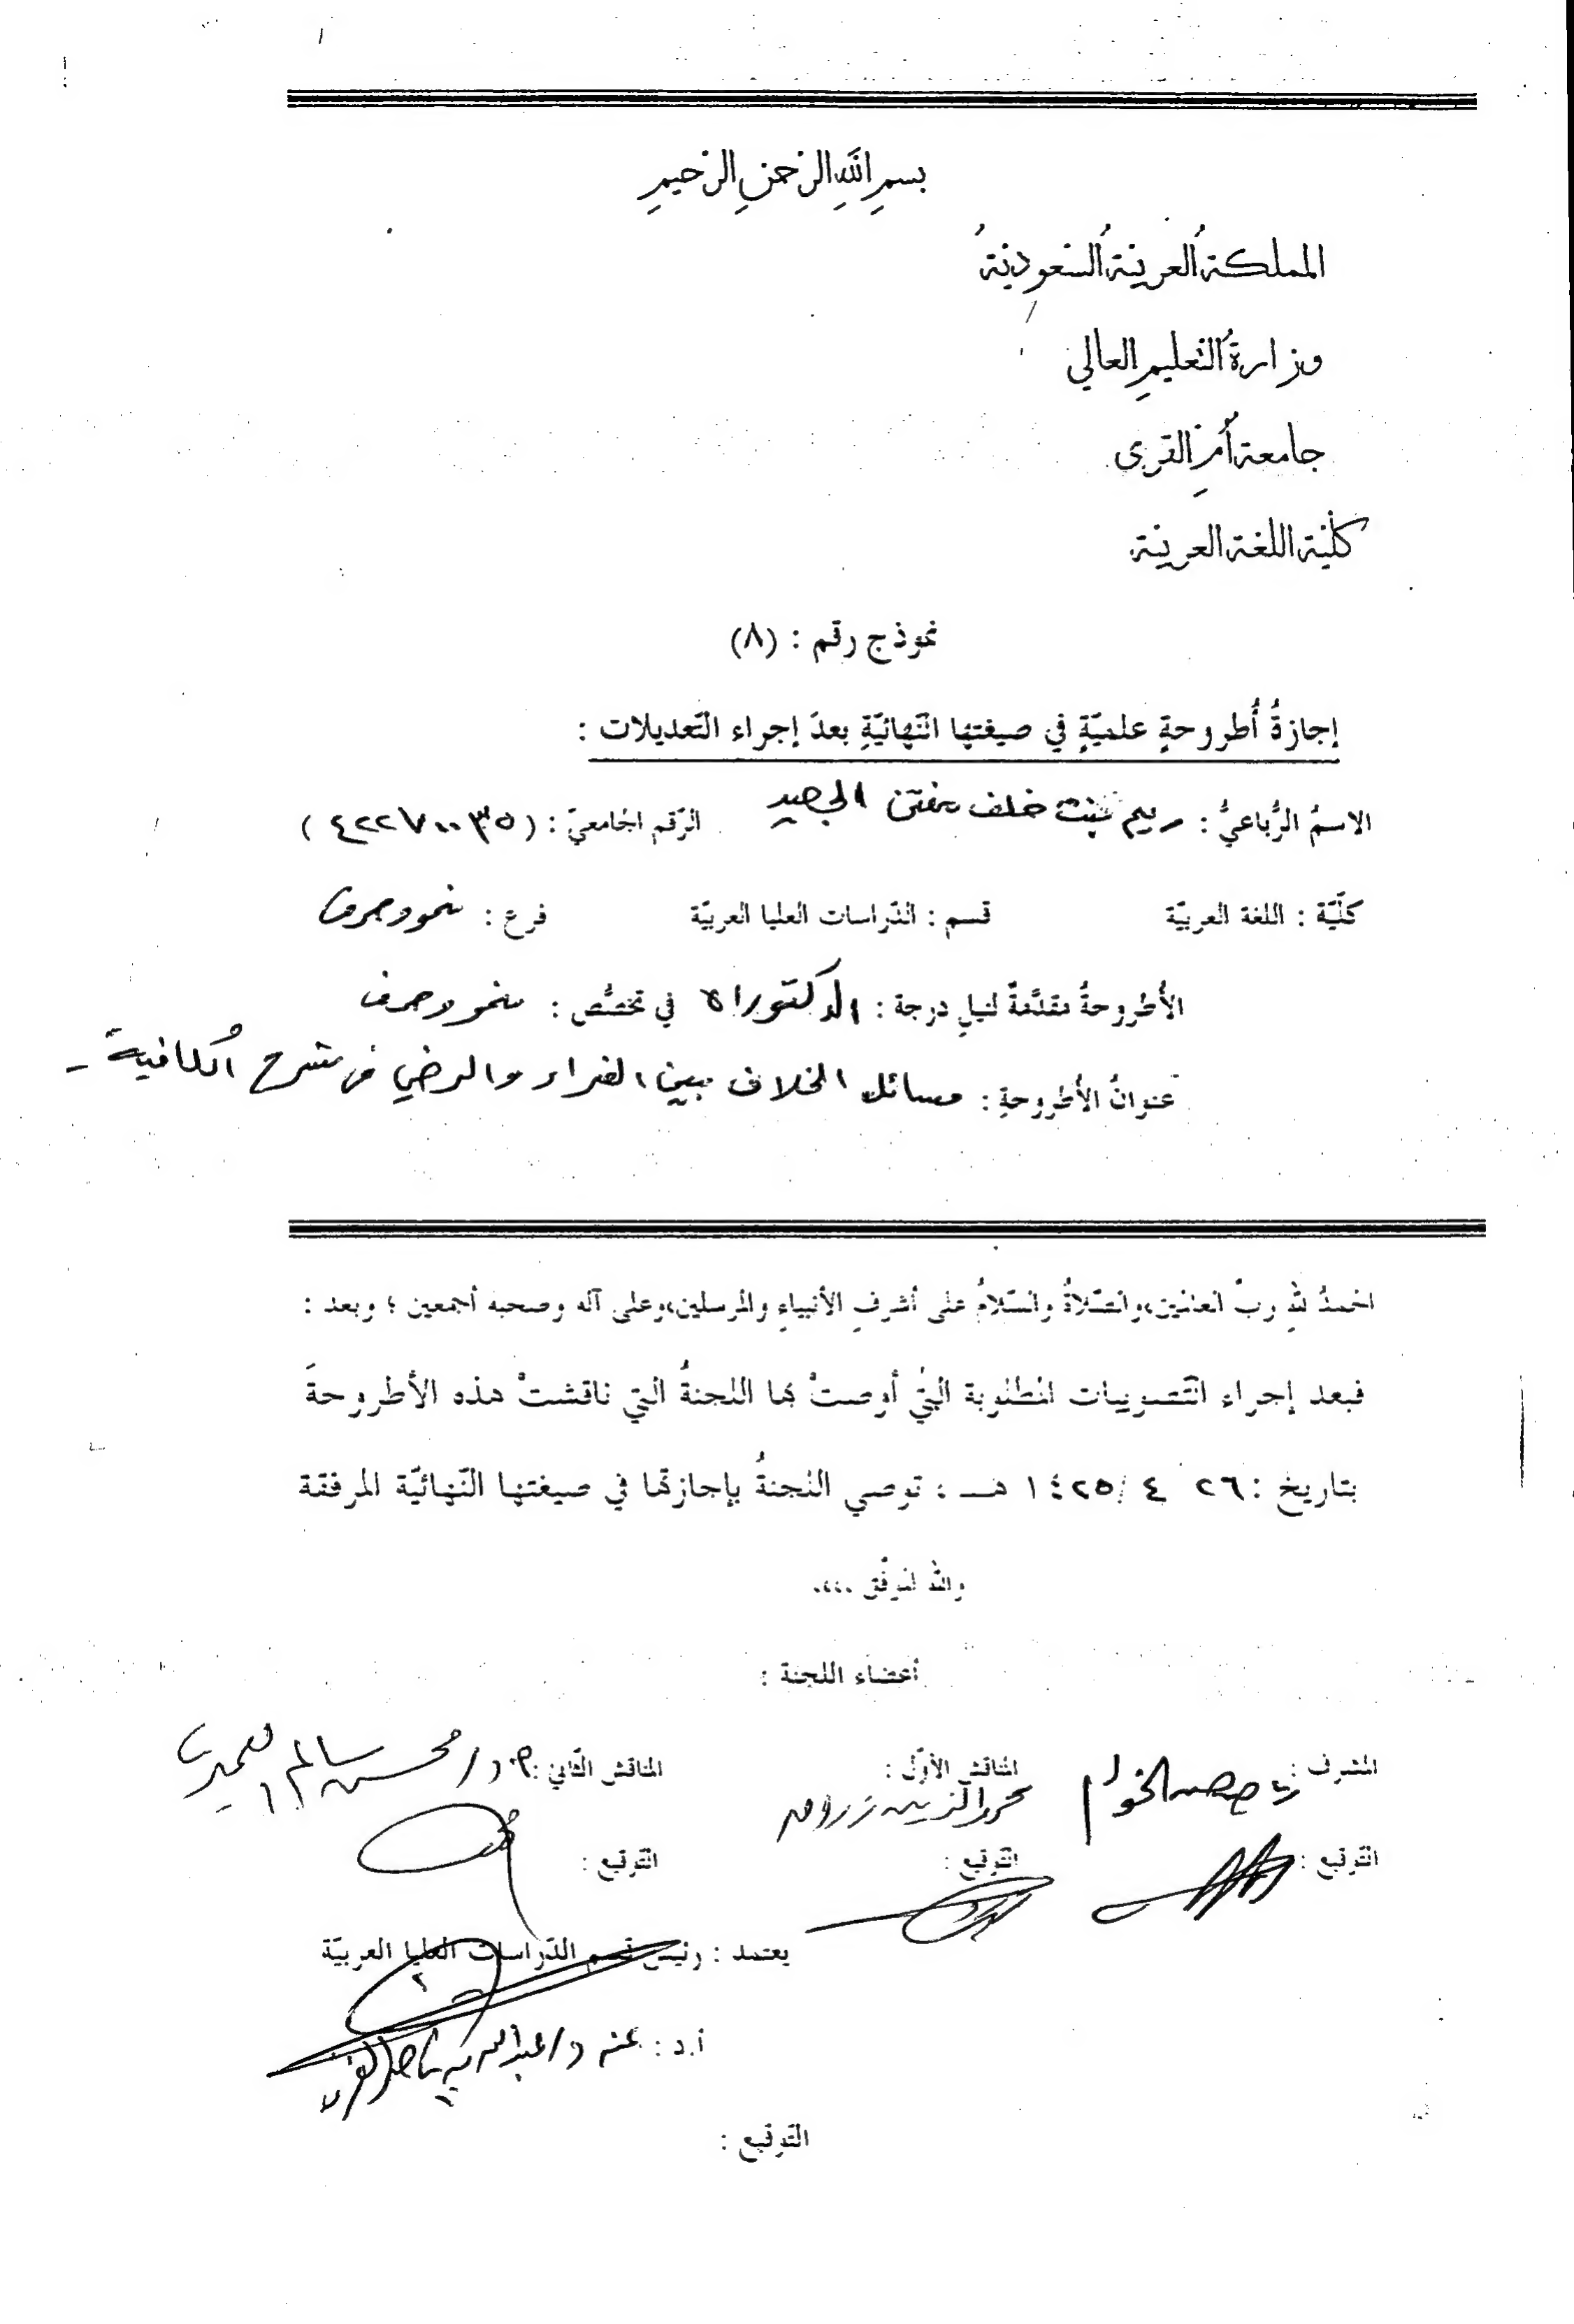 بسمِ اللَّهِ الرَّحمنِ الرَّحيمِ
المملكةُ العربيَّةُ السَّعوديَّةُ
وزارةُ التَّعليمِ العالي
جامعة أُمِّ القرى
كلِّيَّة اللغة العربيَّة
نموذج رقم : (٨)
إجازةُ أُطروحةٍ علميّةٍ في صيغتها النّهائيّةِ بعدَ إجراء التّعديلات :
الاسمُ الرُّباعيُّ : ريم بنت خلف الرّقم الجامعيّ : (٤٢٢٧٠٠٣٥)
كلّيّة : اللغة العربيّة قسم : الدّراسات العليا العربيّة فرع : نحو وصرف
الأُطروحةُ مقدّمةٌ لنيلِ درجة : الدكتوراه في تخصُّص : نحو وصرف
عنوانُ الأُطروحةِ : مسائل الخلاف بين الفراء والرضي في شرح الكافية -
الحمدُ للهِ ربِّ العالمين، والصّلاةُ والسّلامُ على أشرفِ الأنبياءِ والمرسلين، وعلى آله وصحبه أجمعين ؛ وبعد :
فبعد إجراء التّصويبات المطلوبة الّتي أوصتْ بها اللجنةُ التي ناقشتْ هذه الأطروحةَ
بتاريخ : ٢٦ ٤ /١٤٢٥ هـــ ، توصي اللجنةُ بإجازتها في صيغتها النّهائيّة المرفقة
والله الموفّق ،،،،
أعضاء اللجنة :
المشرف : المناقش الأوّل : المناقش الثّاني : د/ محسن سالم العميري
التّوقيع : التّوقيع : التّوقيع :
يعتمد : رئيس قسم الدّراسات العليا العربيّة
أ.د : عنه د/ عبدالله ناصر
التّوقيع :